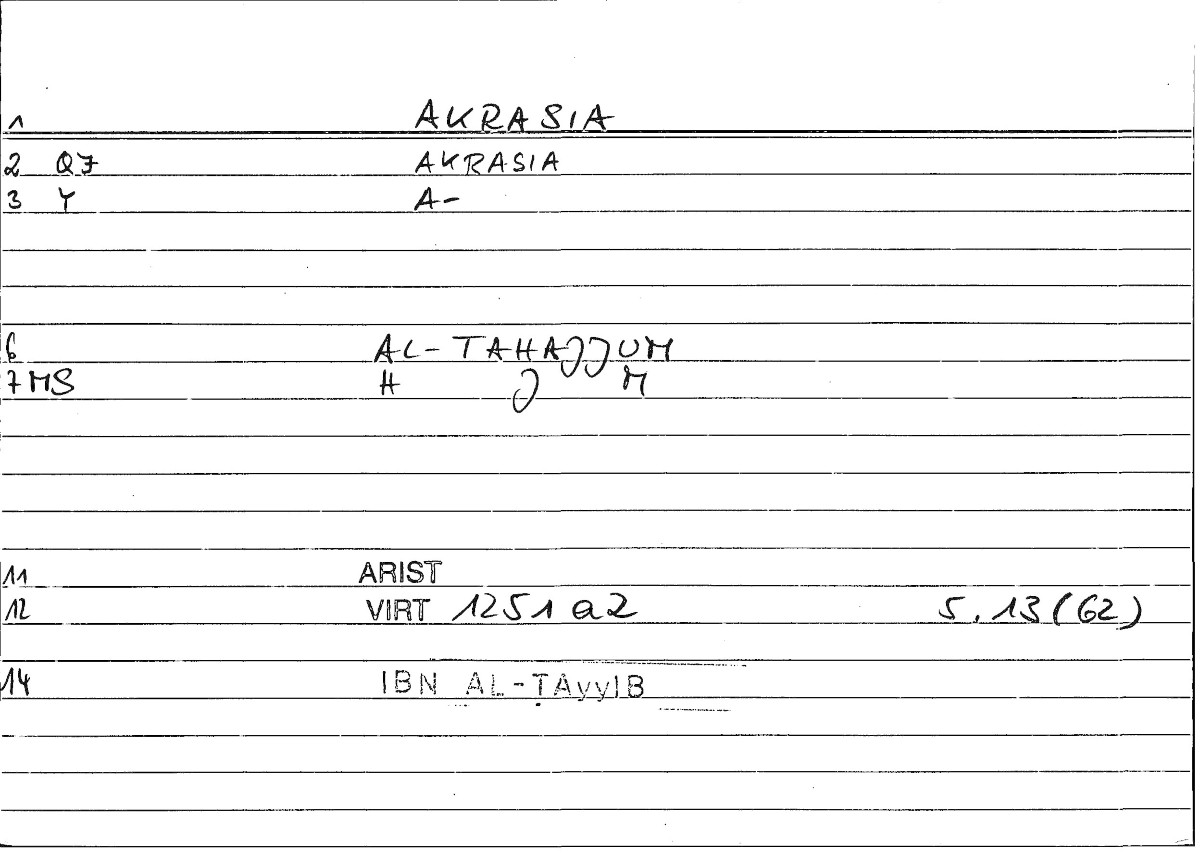 1 AKRASIA
2 QF AKRASIA
3 Y A-
6 AL-TAHAJJUM
7 MS H J M
11 ARIST
12 VIRT 1251a2 5.13(62)
14 IBN AL-ṬAyyIB